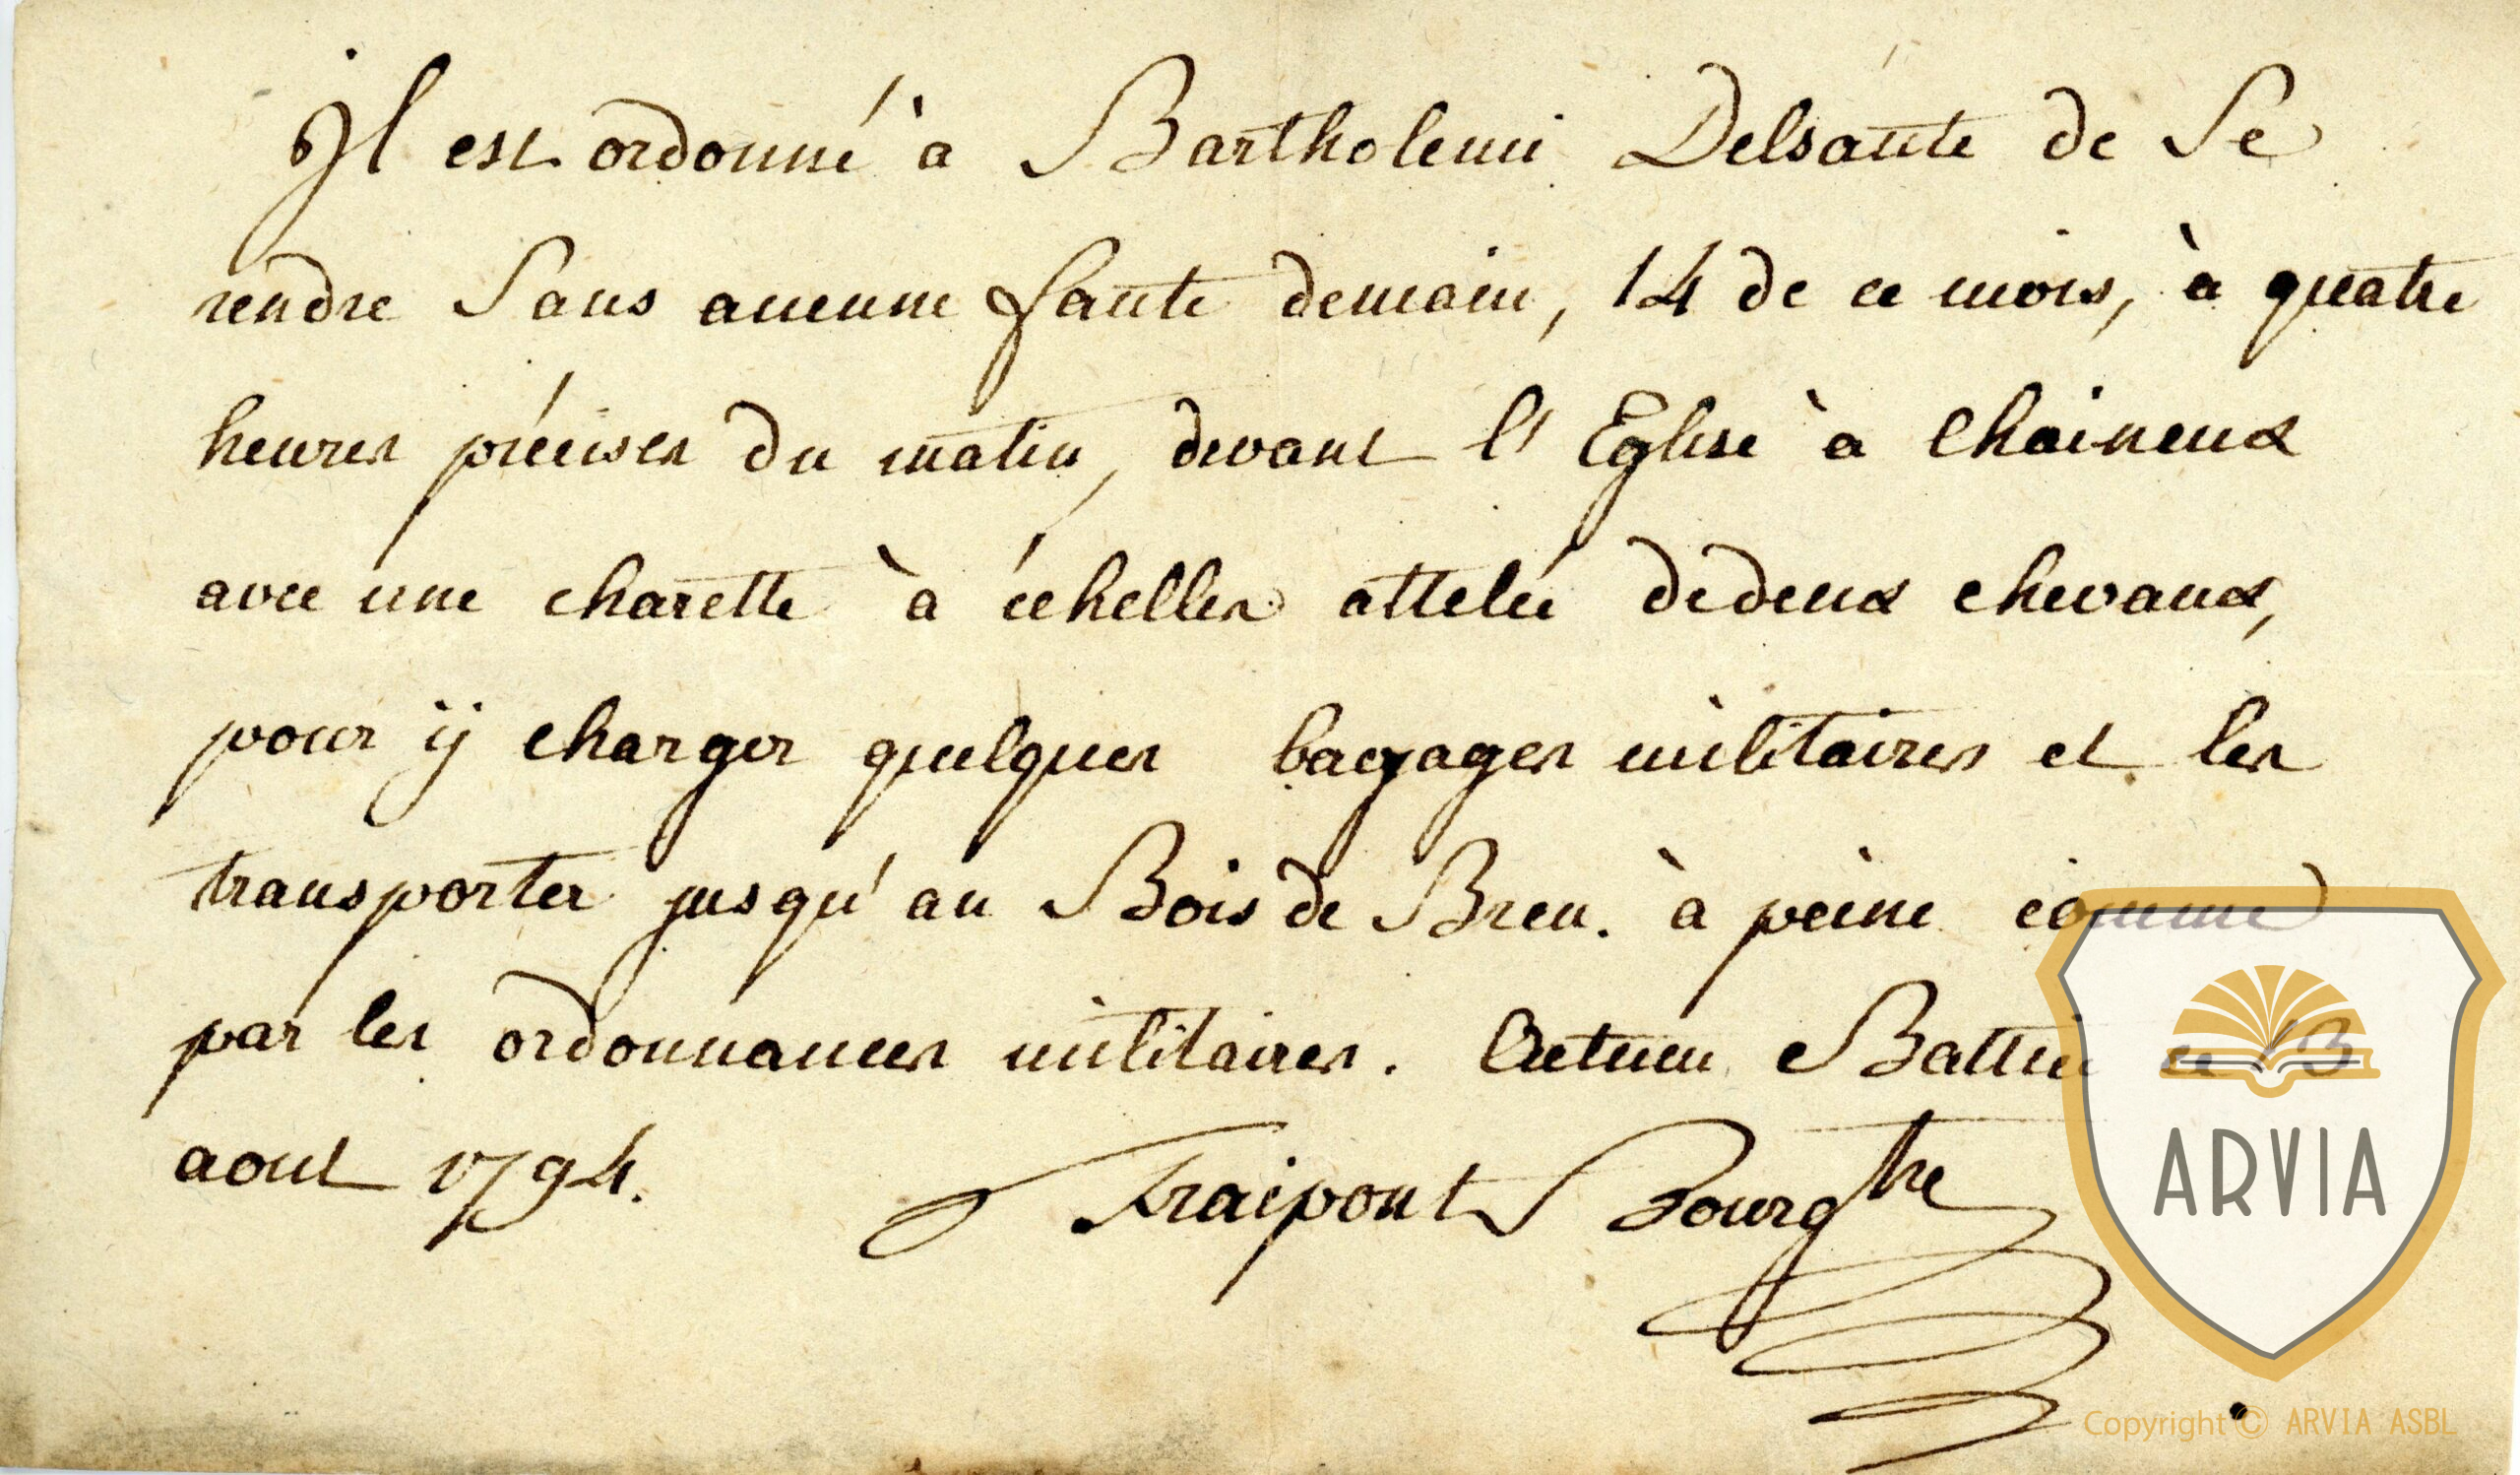 Il est ordonné à Bartholemi Delsaute de Se
rendre Sans aucune faute demain, 14 de ce mois, à quatre
heures précises du matin, devant l'Eglise à Chaineux
avec une charette à échelles attelée de deux chevaux,
pour ij charger quelques bagages militaires et les
transporter jusqu'au Bois de Breu. à peine comme
par les ordonnances militaires. Actum Battice ce 13
aout 1794.
Fraipont Bourgtre
ARVIA
Copyright © ARVIA ASBL